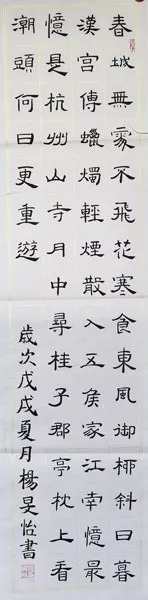 春城無處不飛花寒食東風御柳斜日暮
漢宮傳蠟燭輕煙散入五侯家江南憶最
憶是杭州山寺月中尋桂子郡亭枕上看
潮頭何日更重遊
歲次戊戌夏月楊旻怡書